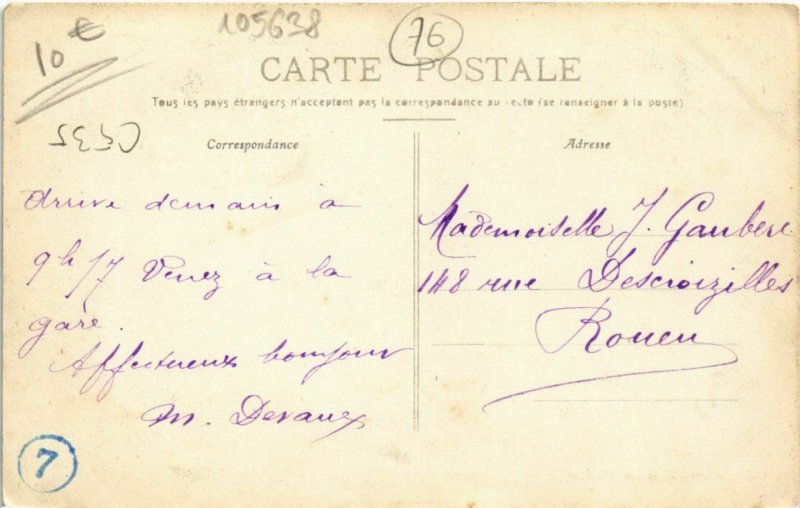 10 €
105638
76
CARTE POSTALE
Tous les pays étrangers n'acceptent pas la correspondance au recto (se renseigner à la poste)
Correspondance
Arrive demain à
9h 17 Venez à la
gare.
Affectueux bonjour
M. Devaux
7
Adresse
Mademoiselle J. Gaubere
148 rue Descroizilles
Rouen